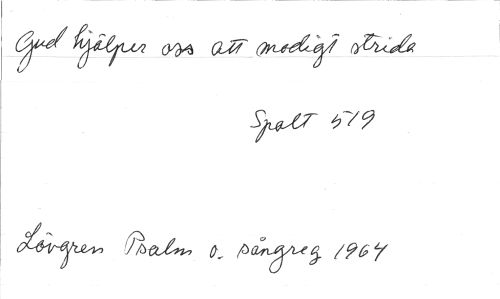 Gud hjälper oss att modigt strida
Spalt 519
Lövgren Psalm o. sångreg 1964